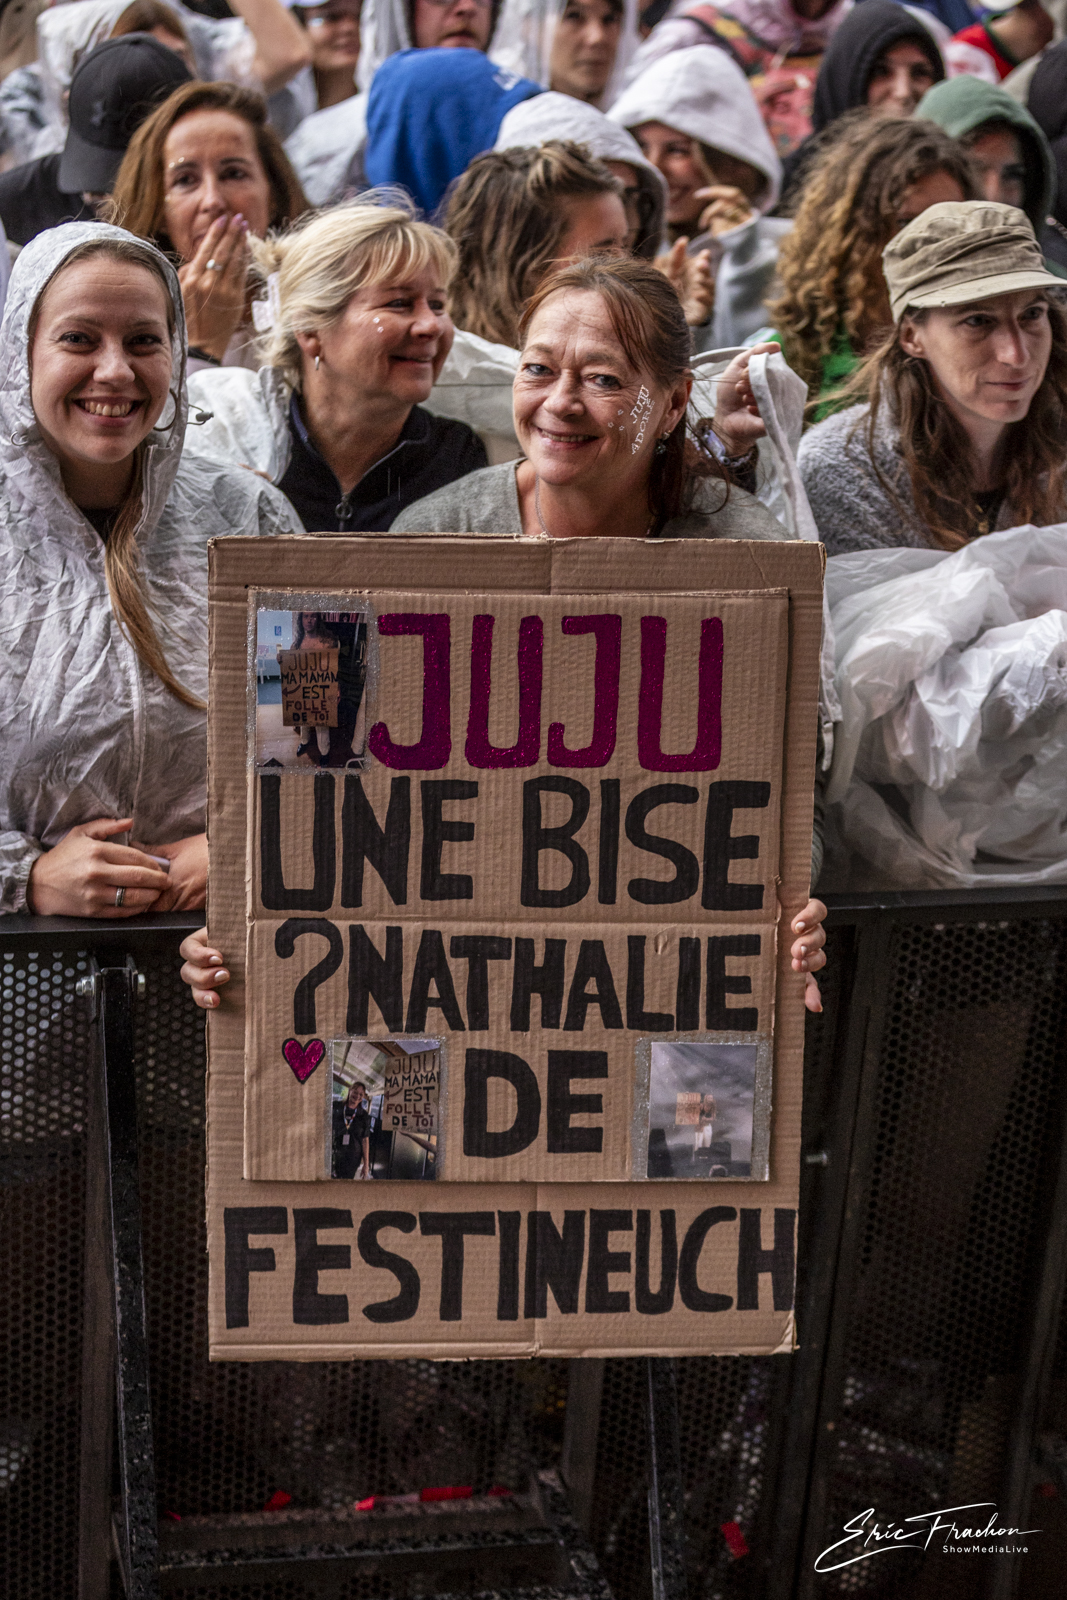 JUJU
ADORE
JUJU
MA MAMAN
EST
FOLLE
DE TOI
JUJU
UNE BISE
? NATHALIE
DE
JUJU
MA MAMAN
EST
FOLLE
DE TOI
FESTINEUCH
Eric Frachon
ShowMediaLive